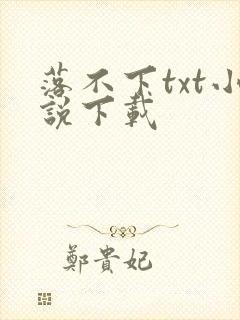 落不下txt小
説下載
鄭貴妃